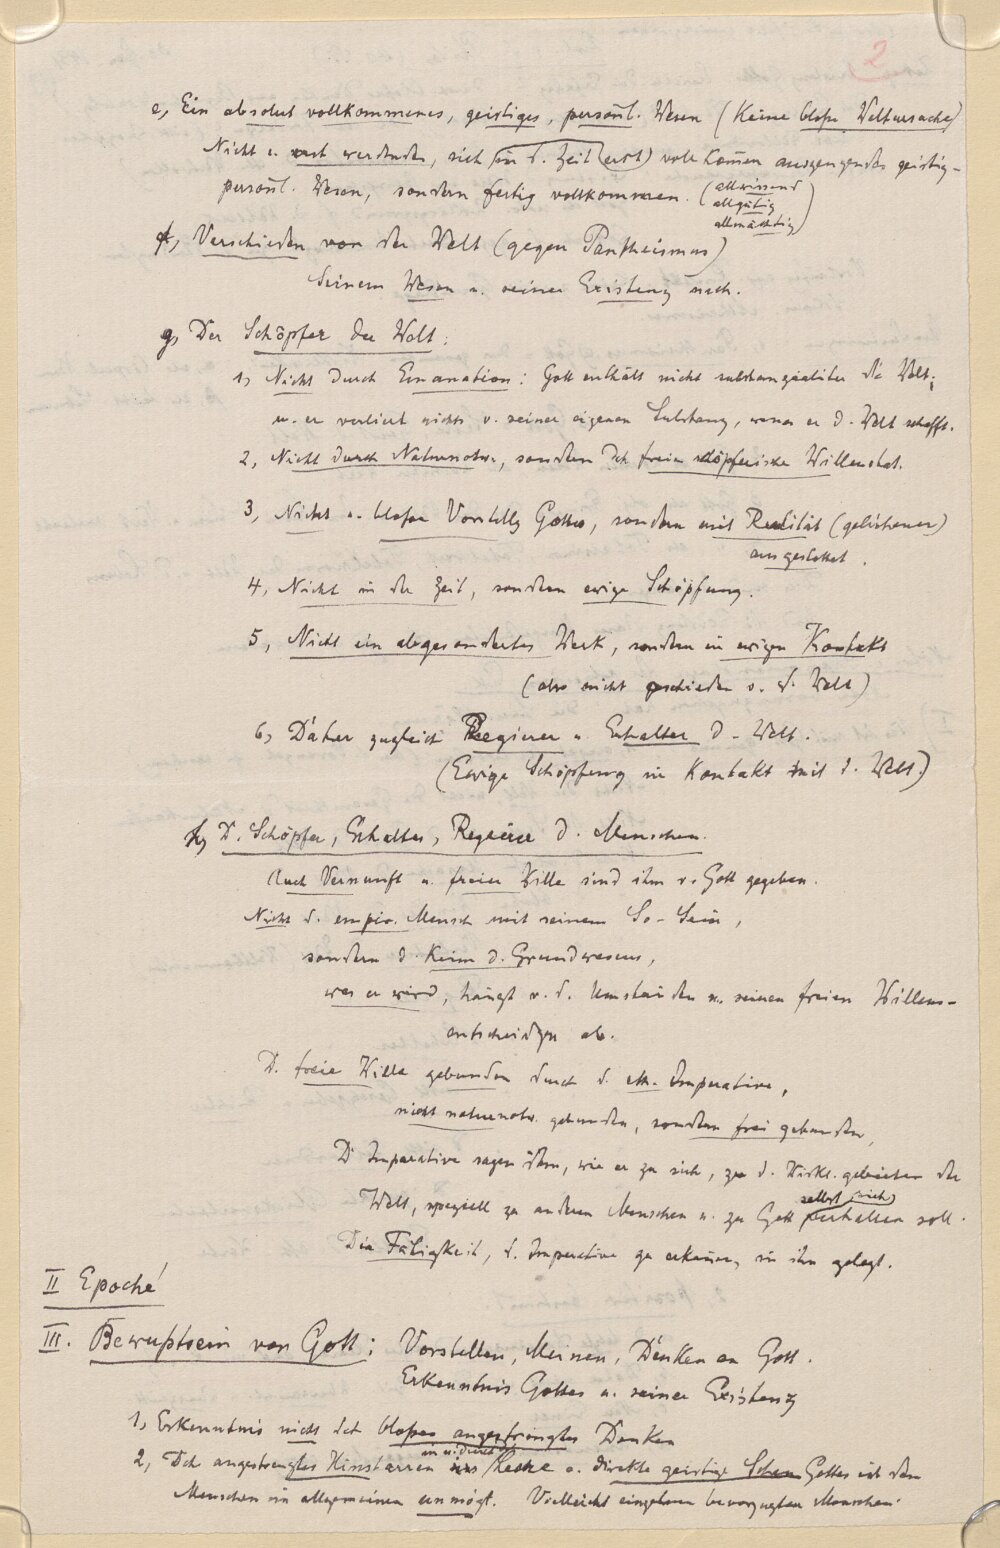 2
e, Ein absolut vollkommenes, geistiges, persönl. Wesen (Keine bloße Weltursache)
Nicht e. erst werdendes, sich in d. Zeit (erst) vollkommen ausprägendes geistig-
persönl. Wesen, sondern fertig vollkommen. (allwissend
allgütig
allmächtig)
f, Verschieden von der Welt (gegen Pantheismus)
Seinem Wesen u. seiner Existenz nach.
g, Der Schöpfer der Welt:
1, Nicht durch Emanation: Gott enthält nicht substanzialiter die Welt;
u. er verliert nichts v. seiner eigenen Substanz, wenn er d. Welt schafft.
2, Nicht durch Naturnotw., sondern dch freie schöpferische Willenstat.
3, Nicht e. bloße Vorstellg Gottes, sondern mit Realität (geliehener)
ausgestattet.
4, Nicht in der Zeit, sondern ewige Schöpfung.
5, Nicht ein abgesondertes Werk, sondern in ewigem Kontakt
(also nicht geschieden v. d. Welt)
6, Daher zugleich Regierer u. Erhalter d. Welt.
(Ewige Schöpfung in Kontakt mit d. Welt.)
h, D. Schöpfer, Erhalter, Regierer d. Menschen.
Auch Vernunft u. freier Wille sind ihm v. Gott gegeben.
Nicht d. empir. Mensch mit seinem So-Sein,
sondern d. Keim d. Grundwesens,
was er wird, hängt v. d. Umständen u. seinen freien Willens-
entscheidgn ab.
D. freie Wille gebunden durch d. eth. Imperative,
nicht naturnotw. gebunden, sondern frei gebunden,
D. Imperative sagen ihm, wie er zu sich, zu d. Wirkl. gebieten der
Welt, speziell zu anderen Menschen u. zu Gott selbst (sich) verhalten soll.
Die Fähigkeit, d. Imperative zu erkennen, in ihn gelegt.
II Epoché
III. Bewußtsein von Gott: Vorstellen, Meinen, Denken an Gott.
Erkenntnis Gottes u. seiner Existenz
1, Erkenntnis nicht dch bloßes angestrengtes Denken
2, Dch angestrengtes Hinstarren in u. durch ins Leere e. direkte geistige Schau Gottes ist den
Menschen im allgemeinen unmögl. Vielleicht einzelnen bevorzugten Menschen.